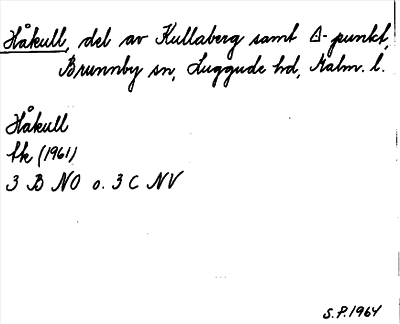 Håkull, del av Kullaberg samt △-punkt,
Brunnby sn, Luggude hd, Malm. l.
Håkull
tk (1961)
3 B NO o. 3 C NV
S.P. 1964